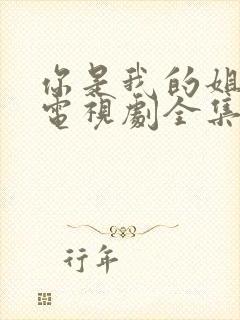 你是我的姐
電視劇全集
行年